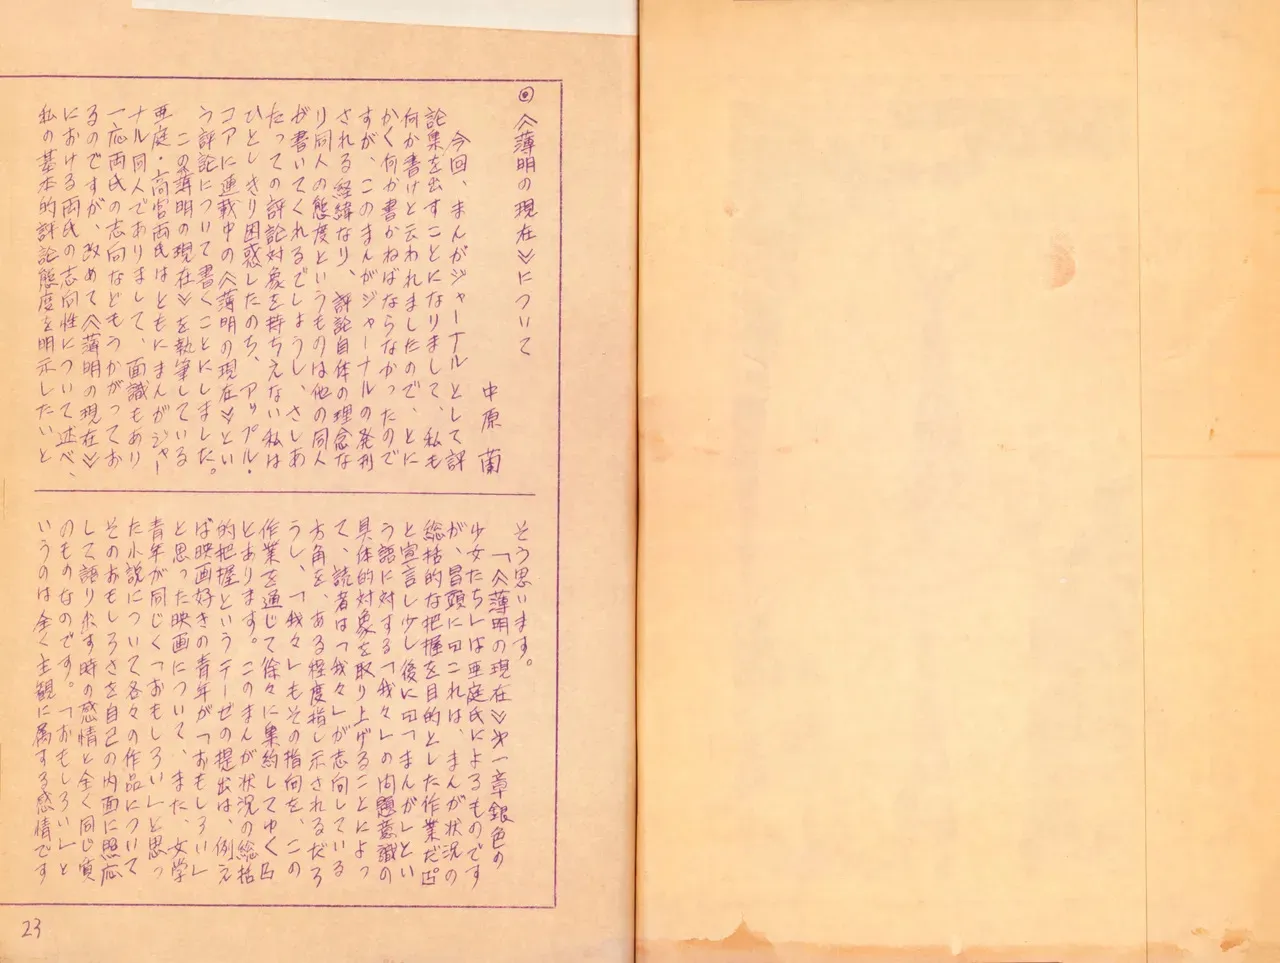 ◎≪薄明の現在≫について
中原蘭
今回、まんがジャーナルとして評
論集を出すことになりまして、私も
何か書けと云われましたので、とに
かく何か書かねばならなかったので
すが、このまんがジャーナルの発刊
される経緯なり、評論自体の理念な
り同人の態度というものは他の同人
が書いてくれるでしょうし、さしあ
たっての評論対象を持ちえない私は
ひとしきり困惑したのち、アップル・
コアに連載中の≪薄明の現在≫とい
う評論について書くことにしました。
この≪薄明の現在≫を執筆している
亜庭・高宮両氏はともにまんがジャー
ナル同人でありまして、面識もあり
一応両氏の志向などもうかがってお
るのですが、改めて≪薄明の現在≫
における両氏の志向性について述べ、
私の基本的評論態度を明示したいと
そう思います。
「≪薄明の現在≫第一章銀色の
少女たち」は亜庭氏によるものです
が、冒頭に『これは、まんが状況の
総括的な把握を目的とした作業だ』
と宣言し少し後に『「まんが」とい
う語に対する「我々」の問題意識の
具体的対象を取り上げることによっ
て、読者は「我々」が志向している
方角を、ある程度指し示されるだろ
うし、「我々」もその指向を、この
作業を通じて徐々に集約してゆく』
とあります。このまんが状況の総括
的把握というテーゼの提出は、例え
ば映画好きの青年が「おもしろい」
と思った映画について、また、文学
青年が同じく「おもしろい」と思っ
た小説について各々の作品について
そのおもしろさを自己の内面に照応
して語り示す時の感情と全く同じ質
のものなのです。「おもしろい」と
いうのは全く主観に属する感情です
23